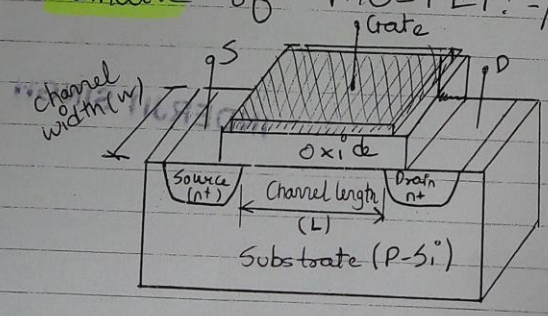 of MOSFET:-
Gate
S
D
Channel
width (w)
Oxide
Source
(n+)
Channel length
(L)
Drain
n+
Substrate (P-Si)